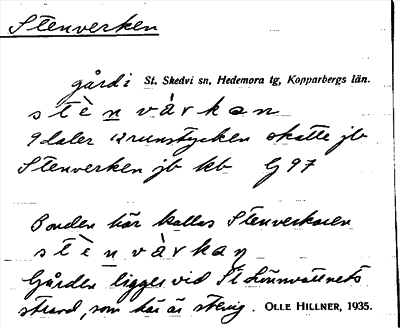 Stenverken
gård i St. Skedvi sn, Hedemora tg, Kopparbergs län.
s t è n v à r k a n
9 daler 12 runstycken skatte jb
Stenverken jb kb G 97
Bonden här kallas Stenverkaren
s t è n v à r k a n
Gården ligger vid St. Lönnvattnets
strand, som här är stenig. OLLE HILLNER, 1935.